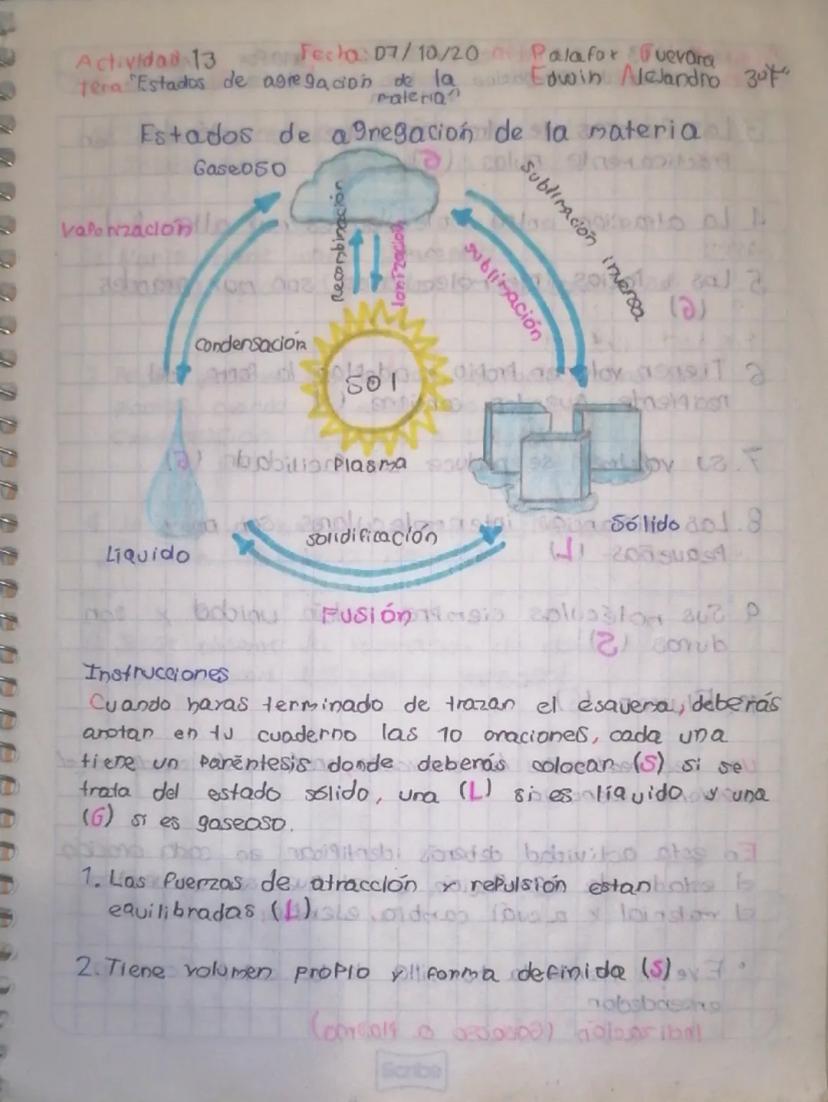 Actividad 13 Fecha: 07/10/20 Palafox Guevara
Tema "Estados de agregacion de la Edwin Alejandro
materia"
Estados de agregacion de la materia
Gaseoso
Vaporización
Recombinación
Ionización
Sublimación inversa
Sublimación
Condensación
Sol
Plasma
Sólido
Liquido
Solidificación
Fusión
Instrucciones
Cuando hayas terminado de trazar el esquema, deberás
anotar en tu cuaderno las 10 oraciones, cada una
tiene un Paréntesis donde deberás colocar (S) si se
trata del estado sólido, una (L) si es líquido y una
(G) si es gaseoso.
1. Las fuerzas de atracción y repulsión estan
equilibradas (L)
2. Tiene volumen propio y forma definida (S)
Scribe